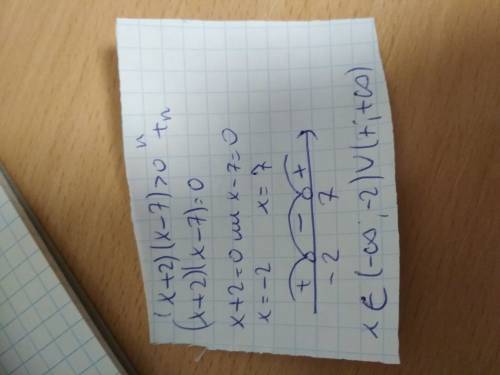 (x+2)(x-7)>0
(x+2)(x-7)=0
x+2=0 или x-7=0
x=-2 x=7
+ - +
-2 7
x ∈ (-∞; -2) ∪ (7; +∞)